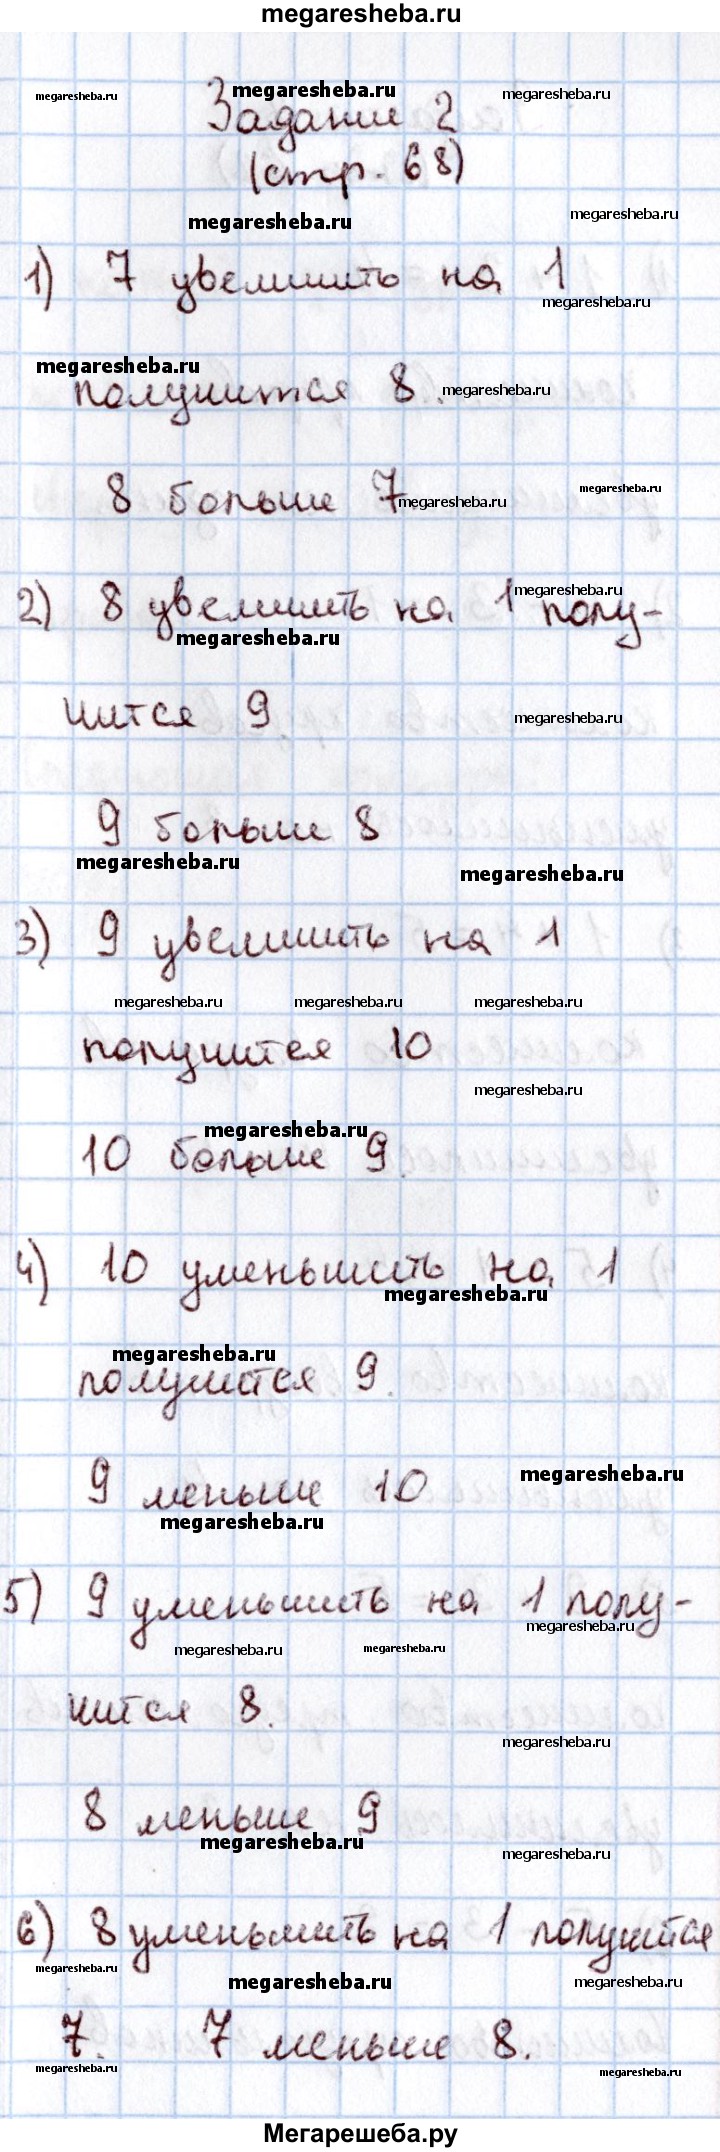 megaresheba.ru
megaresheba.ru megaresheba.ru megaresheba.ru
Задание 2
(стр. 68)
megaresheba.ru megaresheba.ru
1) 7 увеличить на 1
megaresheba.ru
megaresheba.ru
получится 8. megaresheba.ru
8 больше 7 megaresheba.ru megaresheba.ru
megaresheba.ru
2) 8 увеличить на 1 полу-
megaresheba.ru
чится 9. megaresheba.ru
9 больше 8
megaresheba.ru megaresheba.ru
3) 9 увеличить на 1
megaresheba.ru megaresheba.ru megaresheba.ru
получится 10
megaresheba.ru
megaresheba.ru
10 больше 9.
4) 10 уменьшить на 1
megaresheba.ru
megaresheba.ru
получится 9.
9 меньше 10 megaresheba.ru
megaresheba.ru
5) 9 уменьшить на 1 полу-
megaresheba.ru
megaresheba.ru megaresheba.ru
чится 8.
megaresheba.ru
8 меньше 9
megaresheba.ru megaresheba.ru
6) 8 уменьшить на 1 получится
megaresheba.ru megaresheba.ru megaresheba.ru
7. 7 меньше 8.
megaresheba.ru megaresheba.ru
Мегарешеба.ру